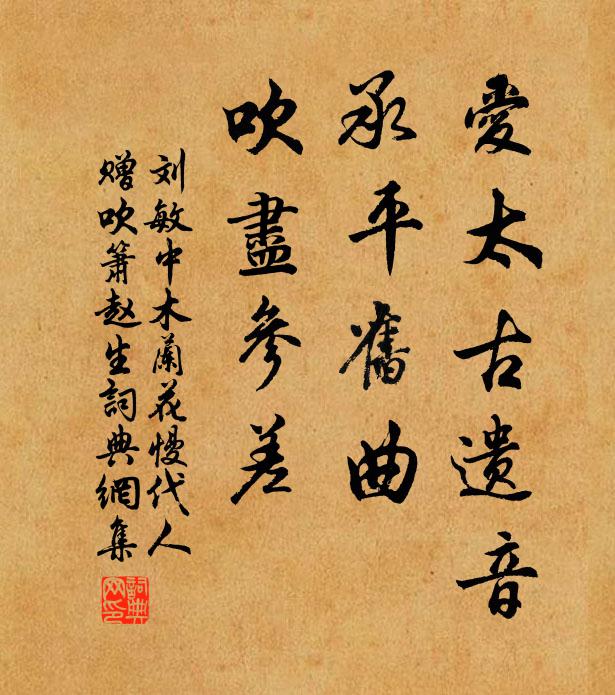 愛太古遺音
承平舊曲
吹盡參差
刘敏中木蘭花慢代人
赠吹簫赵生詞典網集
詞典网印